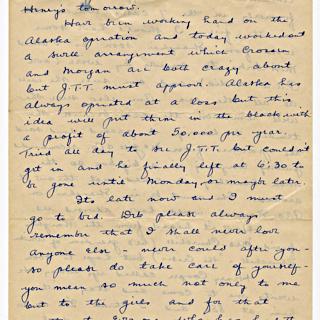 Henrys tomorrow.
Have been working hard on the
Alaska operation and today worked out
a swell arrangement which Crosson
and Morgan are both crazy about
but J.T.T. must approve. Alaska has
always operated at a loss but this
idea will put them in the black with
a profit of about 50,000 per year.
Tried all day to see J.T.T. but couldn't
get in and he finally left at 6:30 to
be gone until Monday, or maybe later.
Its late now and I must
go to bed. please always
remember that I shall never love
anyone else - never could after you -
so please do take care of yourself -
you mean so much not only to me
but to the girls and for that